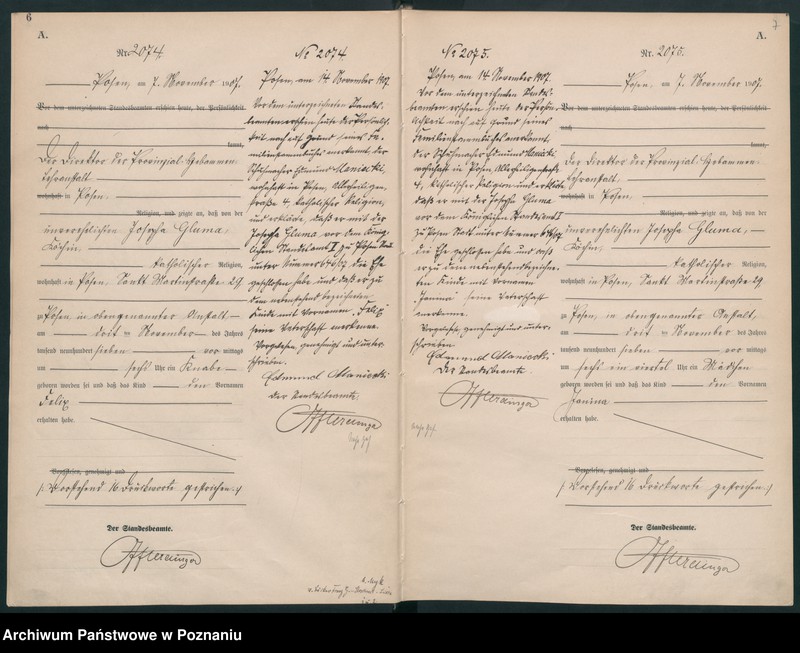 6
A.
Nr. 2074.
Posen, am 7. November 1907.
Vor dem unterzeichneten Standesbeamten erschien heute, der Persönlichkeit
nach
kannt,
Der Direktor der Provinzial-Hebammen-
lehranstalt
wohnhaft in Posen,
Religion, und zeigte an, daß von der
unverehelichten Josepha Gluma,
Köchin,
katholischer Religion,
wohnhaft in Posen, Sankt Martinstraße 29
zu Posen in obengenannter Anstalt
am drei ten November des Jahres
tausend neunhundert sieben vor mittags
um sechs Uhr ein Knabe
geboren worden sei und daß das Kind den Vornamen
Felix
erhalten habe.
Vorgelesen, genehmigt und
/: Vorstehend 16 Druckworte gestrichen. :/
Der Standesbeamte.
No 2074.
Posen, am 14. November 1907.
Vor dem unterzeichneten Standes-
beamten erschien heute der Persönlich-
keit nach auf Grund seines Fa-
milienstammbuches anerkannt, der
Schuhmacher Edmund Maniecki,
wohnhaft in Posen, Allerheiligen-
straße 4, katholischer Religion,
und erklärte, daß er mit der
Josepha Gluma vor dem König-
lichen Standesamt I zu Posen
unter Nummer die Ehe
geschlossen habe und daß er zu
dem nebenstehend bezeichneten
Kinde mit Vornamen "Felix"
seine Vaterschaft anerkenne.
Vorgelesen, genehmigt und unter-
schrieben.
Edmund Maniecki
Der Standesbeamte.
No 2075.
Posen, am 14. November 1907.
Vor dem unterzeichneten Standes-
beamten erschien heute der Persön-
lichkeit nach auf Grund seines
Familienstammbuches anerkannt,
der Schuhmacher Edmund Maniecki
wohnhaft in Posen, Allerheiligenstraße
4, katholischer Religion und erklärte
daß er mit der Josepha Gluma
vor dem Königlichen Standesamt I
zu Posen unter Nummer
die Ehe geschlossen habe und daß
er zu dem nebenstehend bezeichne-
ten Kinde mit Vornamen
Janina seine Vaterschaft
anerkenne.
Vorgelesen, genehmigt und unter-
schrieben.
Edmund Maniecki
Der Standesbeamte
7
A.
Nr. 2075.
Posen, am 7. November 1907.
Vor dem unterzeichneten Standesbeamten erschien heute, der Persönlichkeit
nach
kannt,
Der Direktor der Provinzial-Hebammen-
lehranstalt
wohnhaft in Posen,
Religion, und zeigte an, daß von der
unverehelichten Josepha Gluma,
Köchin,
katholischer Religion,
wohnhaft in Posen, Sankt Martinstraße 29
zu Posen, in obengenannter Anstalt,
am drei ten November des Jahres
tausend neunhundert sieben vor mittags
um sechs ein viertel Uhr ein Mädchen
geboren worden sei und daß das Kind den Vornamen
Janina
erhalten habe.
Vorgelesen, genehmigt und
/: Vorstehend 16 Druckworte gestrichen. :/
Der Standesbeamte.
Archiwum Państwowe w Poznaniu